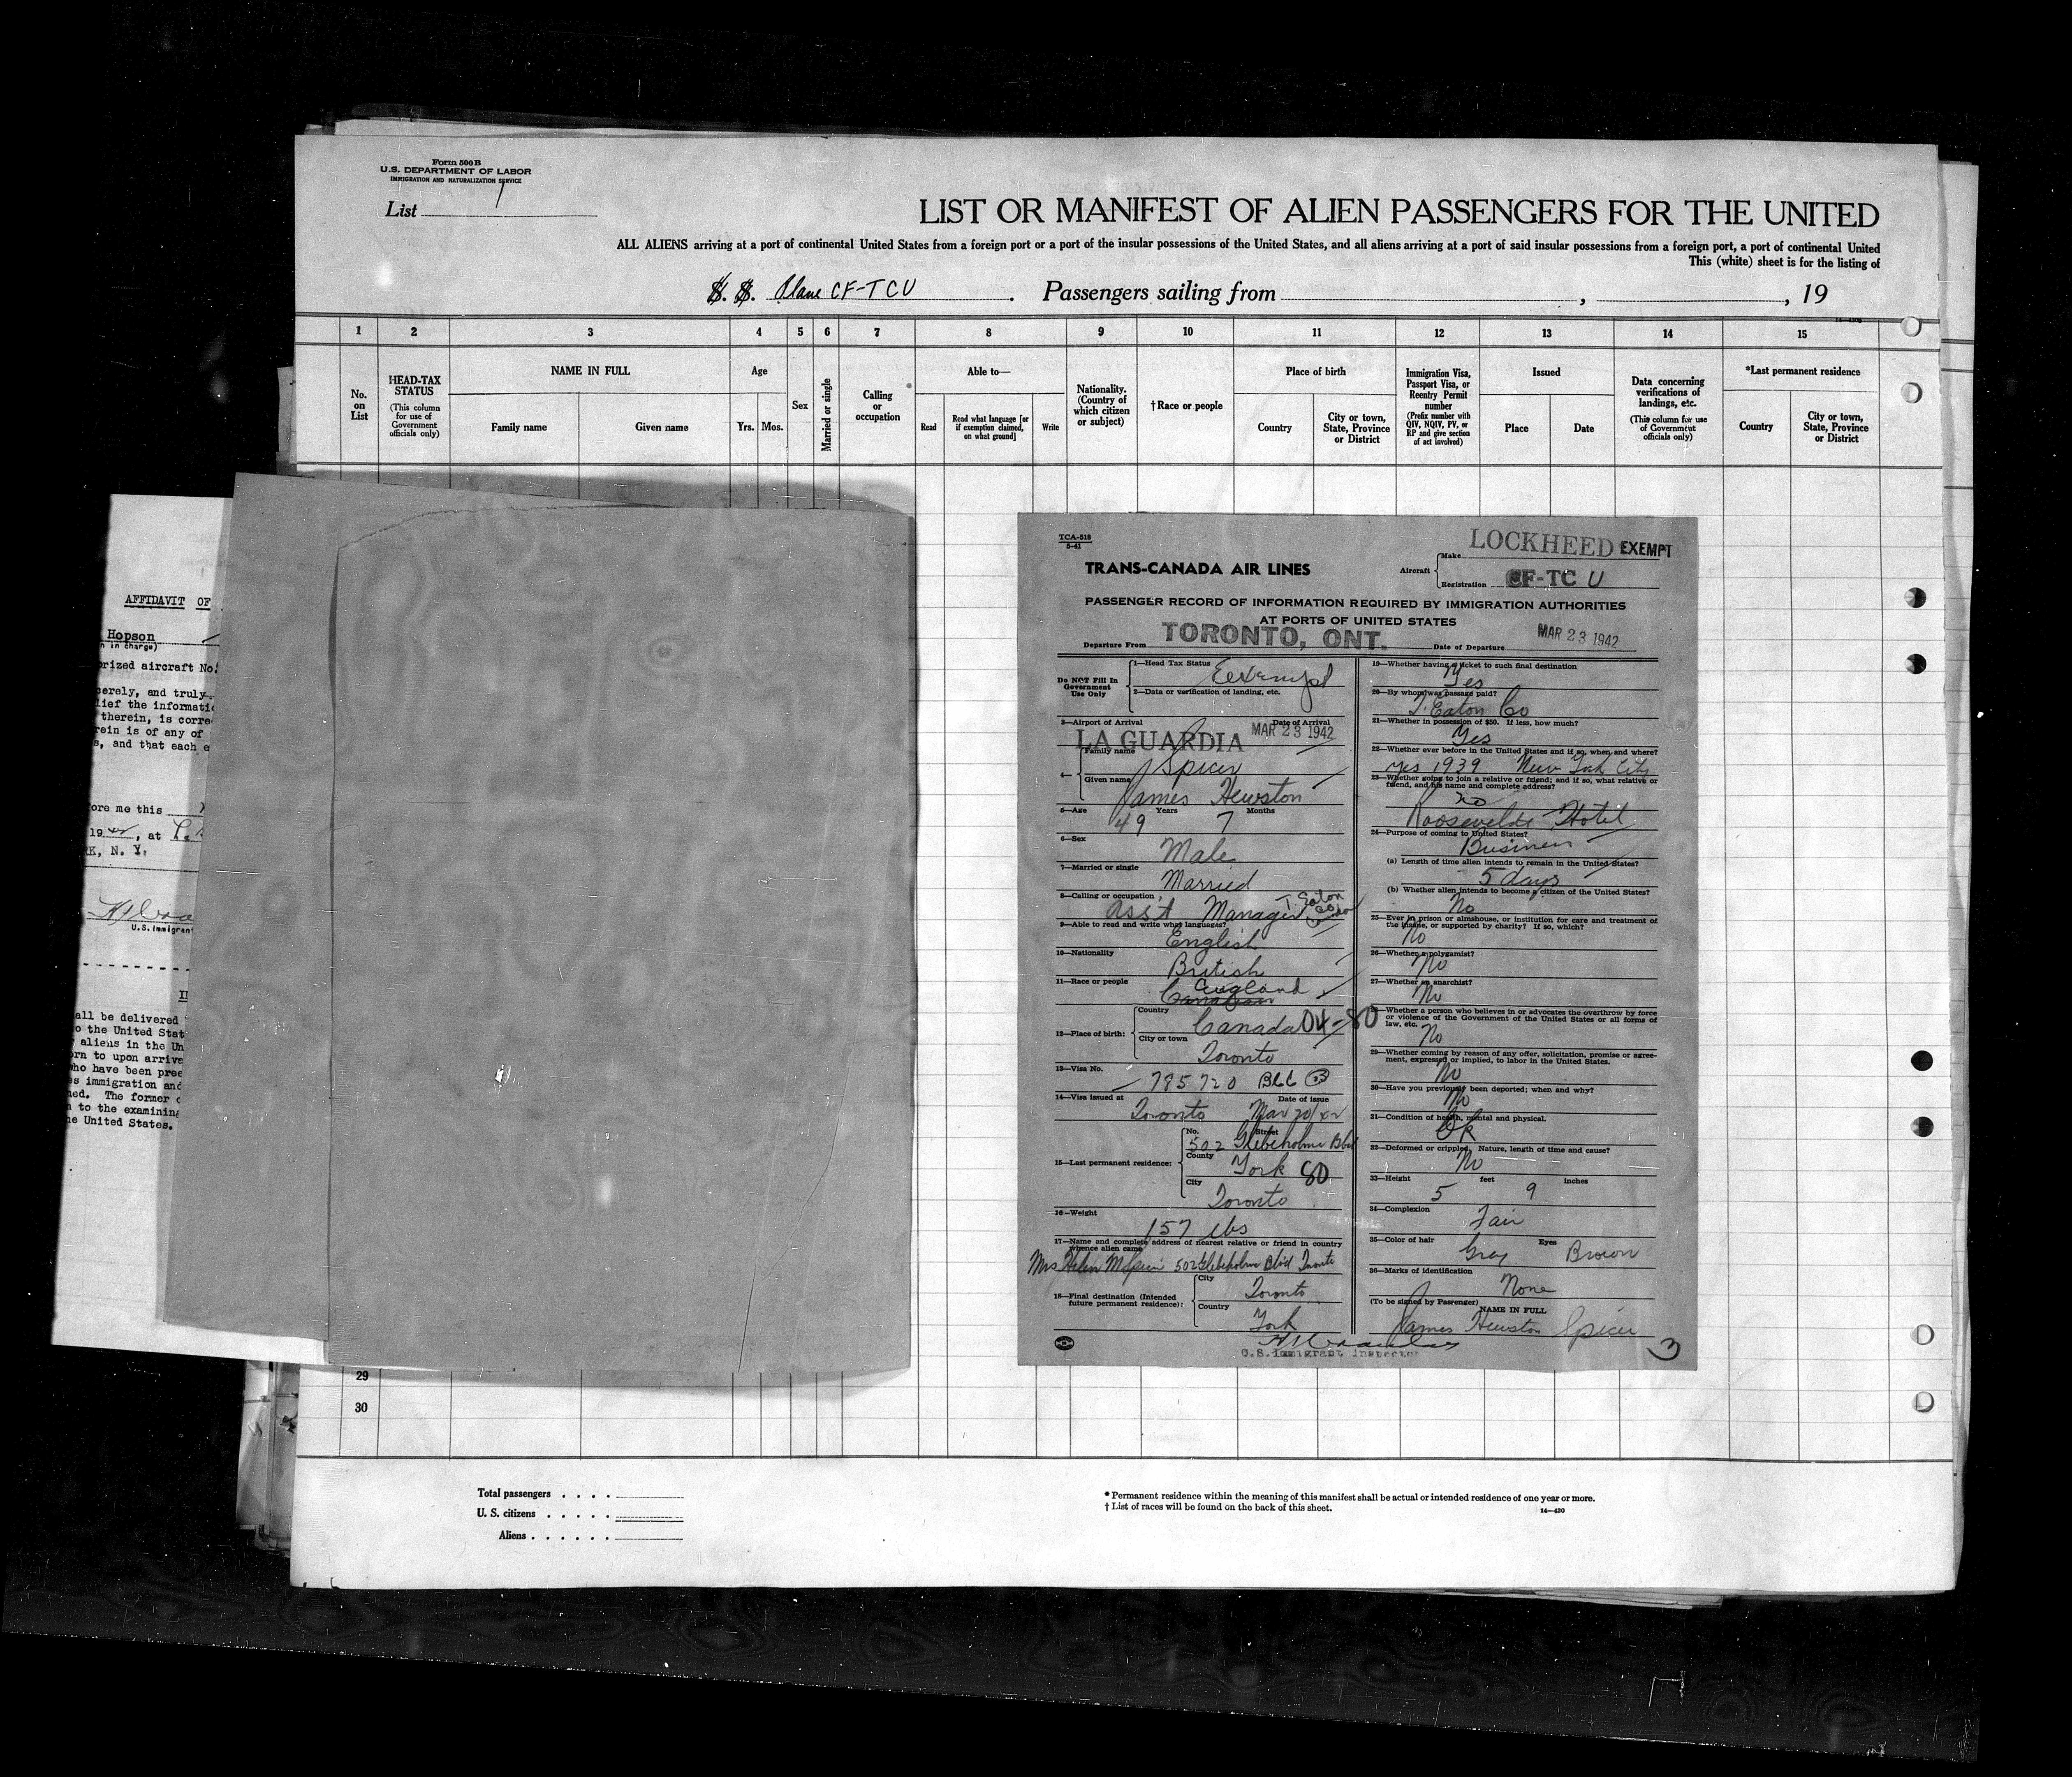 Form 500B
U.S. DEPARTMENT OF LABOR
IMMIGRATION AND NATURALIZATION SERVICE
List 1
LIST OR MANIFEST OF ALIEN PASSENGERS FOR THE UNITED
ALL ALIENS arriving at a port of continental United States from a foreign port or a port of the insular possessions of the United States, and all aliens arriving at a port of said insular possessions from a foreign port, a port of continental United
This (white) sheet is for the listing of
S. S. Plane CF-TCU. Passengers sailing from , , 19
1 2 3 4 5 6 7 8 9 10 11 12 13 14 15
No. on List
HEAD-TAX STATUS
(This column for use of Government officials only)
NAME IN FULL
Family name
Given name
Age
Yrs.
Mos.
Sex
Married or single
Calling or occupation
Able to—
Read
Read what language [or if exemption claimed, on what ground]
Write
Nationality. (Country of which citizen or subject)
†Race or people
Place of birth
Country
City or town, State, Province or District
Immigration Visa, Passport Visa, or Reentry Permit number
(Prefix number with QIV, NQIV, PV, or RP and give section of act involved)
Issued
Place
Date
Data concerning verifications of landings, etc.
(This column for use of Government officials only)
*Last permanent residence
Country
City or town, State, Province or District
AFFIDAVIT OF
Hopson
n in charge)
orized aircraft No.
cerely, and truly
lief the informatio
therein, is corre
rein is of any of
s, and that each e
ore me this
19 , at
RK, N. Y.
U.S. Immigran
all be delivered
o the United Stat
aliens in the Un
orn to upon arriv
ho have been pre
s immigration and
ned. The former
n to the examining
he United States.
TCA-518
5-41
TRANS-CANADA AIR LINES
Aircraft
Make LOCKHEED EXEMPT
Registration CF-TC U
PASSENGER RECORD OF INFORMATION REQUIRED BY IMMIGRATION AUTHORITIES
AT PORTS OF UNITED STATES
Departure From TORONTO, ONT. Date of Departure MAR 23 1942
Do NOT Fill In
Government
Use Only
1—Head Tax Status Exempt
2—Data or verification of landing, etc.
3—Airport of Arrival LA GUARDIA Date of Arrival MAR 23 1942
4— Family name Spicer
Given name James Hewston
5—Age 49 Years 7 Months
6—Sex Male
7—Married or single Married
8—Calling or occupation Asst Manager T. Eaton Co
9—Able to read and write what languages? English
10—Nationality British
11—Race or people England
12—Place of birth: Country Canada 04-80
City or town Toronto
13—Visa No. 785720 BCC
14—Visa issued at Toronto Date of issue Mar 20/42
15—Last permanent residence: No. 502 Street Glebeholme Blvd
County York 80
City Toronto
16—Weight 157 lbs
17—Name and complete address of nearest relative or friend in country whence alien came
Mrs Helen M Spicer 502 Glebeholme Blvd Toronto
18—Final destination (Intended future permanent residence): City Toronto
Country York
U.S. Immigrant Inspector
19—Whether having a ticket to such final destination
Yes
20—By whom was passage paid?
T. Eaton Co
21—Whether in possession of $50. If less, how much?
Yes
22—Whether ever before in the United States and if so, when and where?
yes 1939 New York City
23—Whether going to join a relative or friend; and if so, what relative or friend, and his name and complete address?
no
Roosevelt Hotel
24—Purpose of coming to United States?
Business
(a) Length of time alien intends to remain in the United States?
5 days
(b) Whether alien intends to become a citizen of the United States?
No
25—Ever in prison or almshouse, or institution for care and treatment of the insane, or supported by charity? If so, which?
No
26—Whether a polygamist?
No
27—Whether an anarchist?
No
28—Whether a person who believes in or advocates the overthrow by force or violence of the Government of the United States or all forms of law, etc.
No
29—Whether coming by reason of any offer, solicitation, promise or agreement, expressed or implied, to labor in the United States.
No
30—Have you previously been deported; when and why?
No
31—Condition of health, mental and physical.
Ok
32—Deformed or crippled. Nature, length of time and cause?
No
33—Height 5 feet 9 inches
34—Complexion Fair
35—Color of hair Gray Eyes Brown
36—Marks of identification None
(To be signed by Passenger) NAME IN FULL
James Hewston Spicer
3
29
30
Total passengers
U. S. citizens
Aliens
* Permanent residence within the meaning of this manifest shall be actual or intended residence of one year or more.
† List of races will be found on the back of this sheet.
14—430